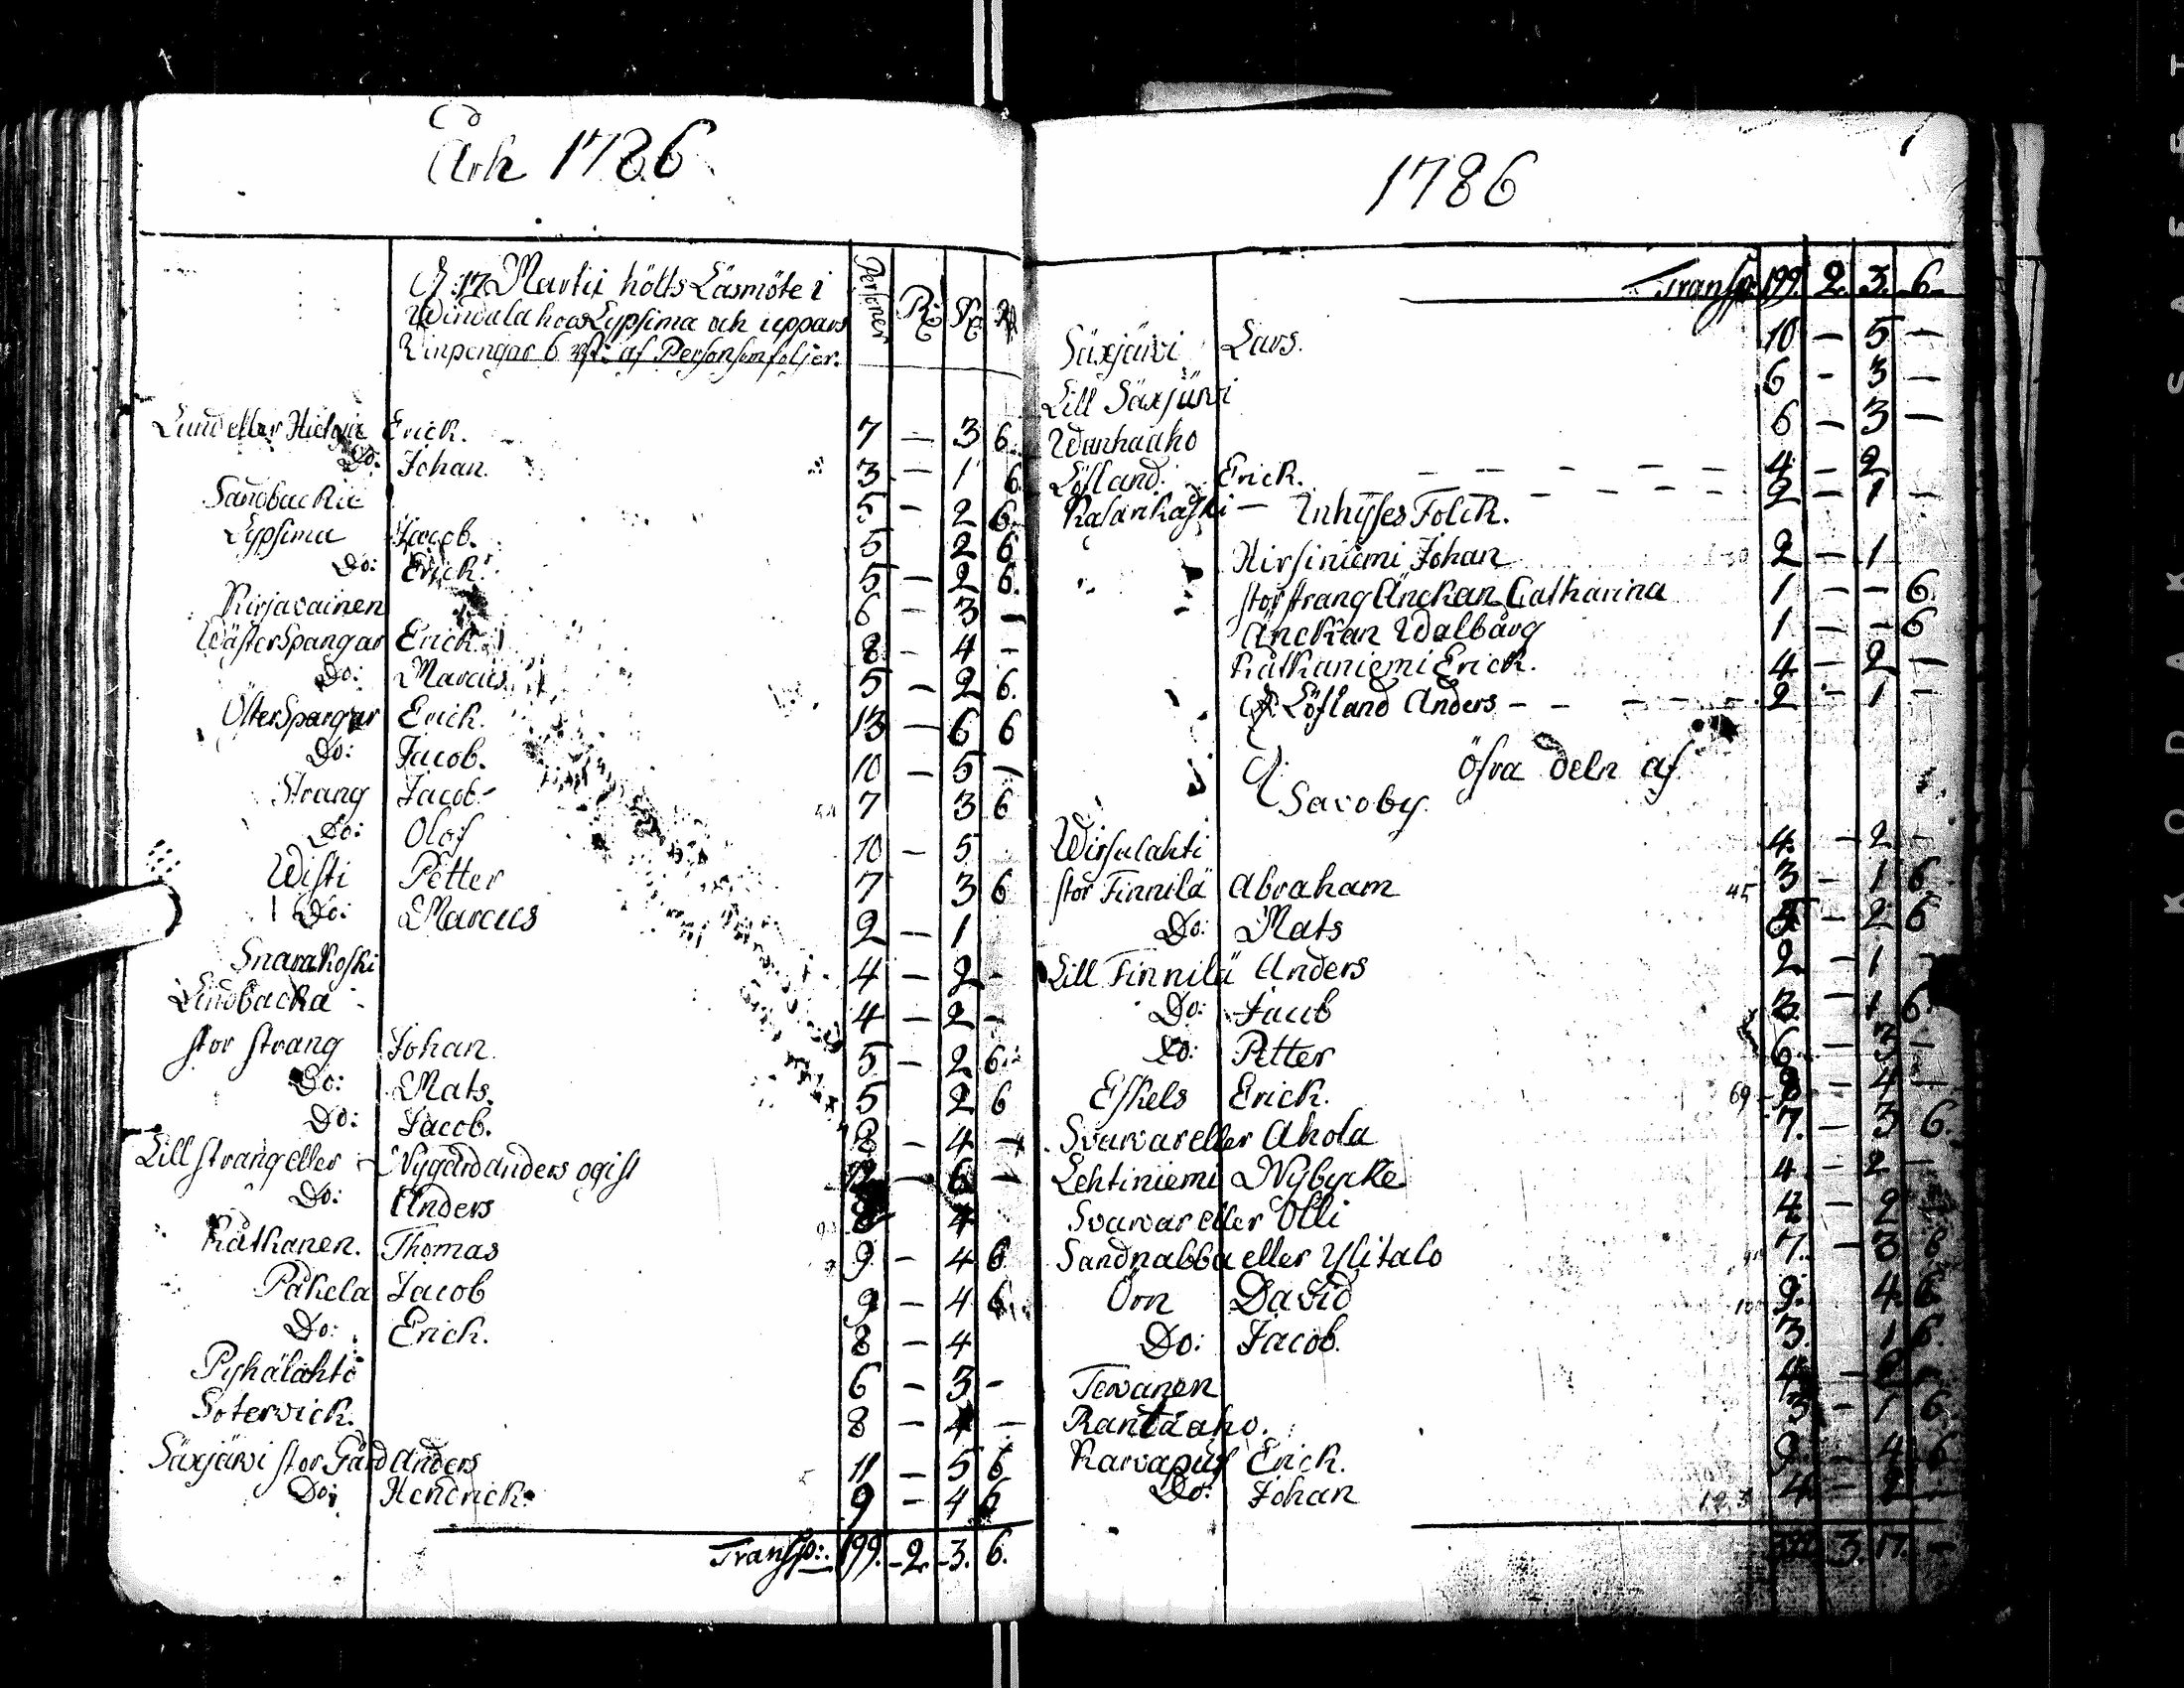 Åhr 1786
D: 17 Martii hölts Läsmöte i
Lypsima och uppars
Vinpengar 6 af Person som foljer.
Personer
Lund eller Erick. 7 — 3 6
Do: Johan. 3 — 1 6
Sandbacka 5 — 2 6
Lypsima Jacob. 5 2 6
Do: Erick. 5 — 2 6.
Kirjavainen 6 — 3 —
WästerSpangar Erick. 8 — 4 —
Do: Marcus. 5 — 2 6.
ÖsterSpangar Erick. 13 — 6 6
Do: Jacob. 10 — 5 —
Strang Jacob 7 3 6
Do: Olof 10 — 5
Wisti Petter 7 3 6
Do: Marcus 2 — 1
Snarakoski 4 — 2 —
Lindbacka 4 — 2 —
stor strang Johan. 5 — 2 6.
Do: Mats. 5 2 6
Do: Jacob. 8 — 4 —
Lill strang eller Nygård anders ogift 12 — 6 —
Do: Anders 8 4
Kåtkanen. Thomas 9 — 4 6
Påkela Jacob 9 — 4 6
Do: Erick. 8 — 4
Pyhälahto 6 — 3 —
Soterwick. 8 — 4 —
Säxjärwi stor Gård Anders 11 — 5 6
Do: Hendrick. 9 — 4 6
Transp: 199. — 2. — 3. 6.
1786
Transp: 199. 2. 3. 6
Säxjärwi Lars. 10 — 5 —
Lill Säxjärwi 6 — 3 —
Wanhaaho 6 — 3 —
Löfland. Erick. 4 — 2
Kasankaski — Inhyses Folck. 2 — 1 —
Hirsiniemi Johan 2 — 1
stor strang Änckan Catharina 1 — — 6.
Änckan Walbårg 1 — — 6
Kåtkaniemi Erick. 4 — 2 —
Löfland Anders 2 — 1 —
Öfra deln af
Savoby.
Wirsulahti 4. — 2 —
stor Finnilä Abraham 45 3 — 1 6.
Do: Mats 5 — 2 6
Lill Finnilä Anders 2 — 1 —
Do: Jacob 3. — 1 6.
Do: Petter 6 — 3 —
Eskels Erick. 69 8 — 4 —
Svarvar eller Ahola 7. — 3 6.
Lehtiniemi Nybycke 4 — 2 —
Svarvar eller Olli 4 — 2
Sandnabba eller Ylitalo 7. — 3 6
Örn David 9. 4 6
Do: Jacob. 3. 1 6.
Tewanen 4 — 2 —
Rantaaho. 3 — 1 6.
Karvapus Erick. 9. — 4 6
Do: Johan 4 — 2 —
3. 17. —
KODAK SAFETY